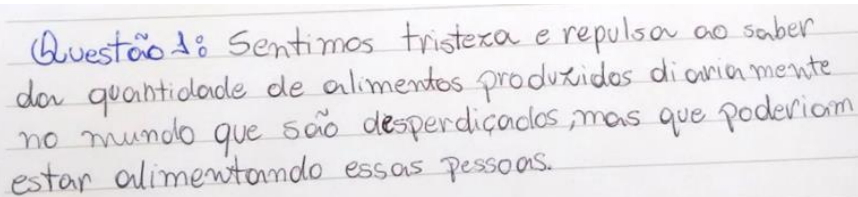 Questão 1: Sentimos tristeza e repulsa ao saber
da quantidade de alimentos produzidos diariamente
no mundo que são desperdiçados, mas que poderiam
estar alimentando essas pessoas.